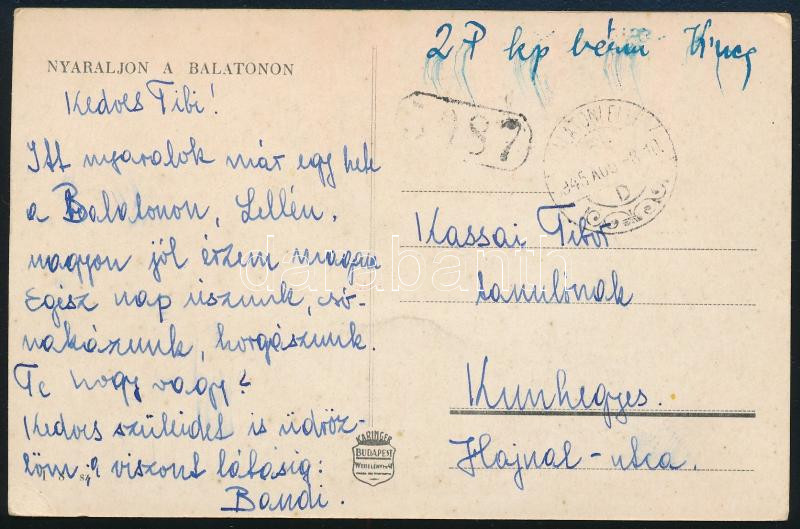 NYARALJON A BALATONON
Kedves Tibi!
Itt nyaralok már egy hete
a Balatonon, Lellén.
nagyon jól érzem magam
Egész nap úszunk, só-
nakázunk, horgászunk.
Te hogy vagy?
Kedves szüleidet is üdröz-
löm: viszont látásig:
Bandi.
2 P kp bérm
945 AUG
D
Kassai Tibor
tanulónak
Kunhegyes.
Hajnal-utca.
KARINGER
BUDAPEST
darabanth